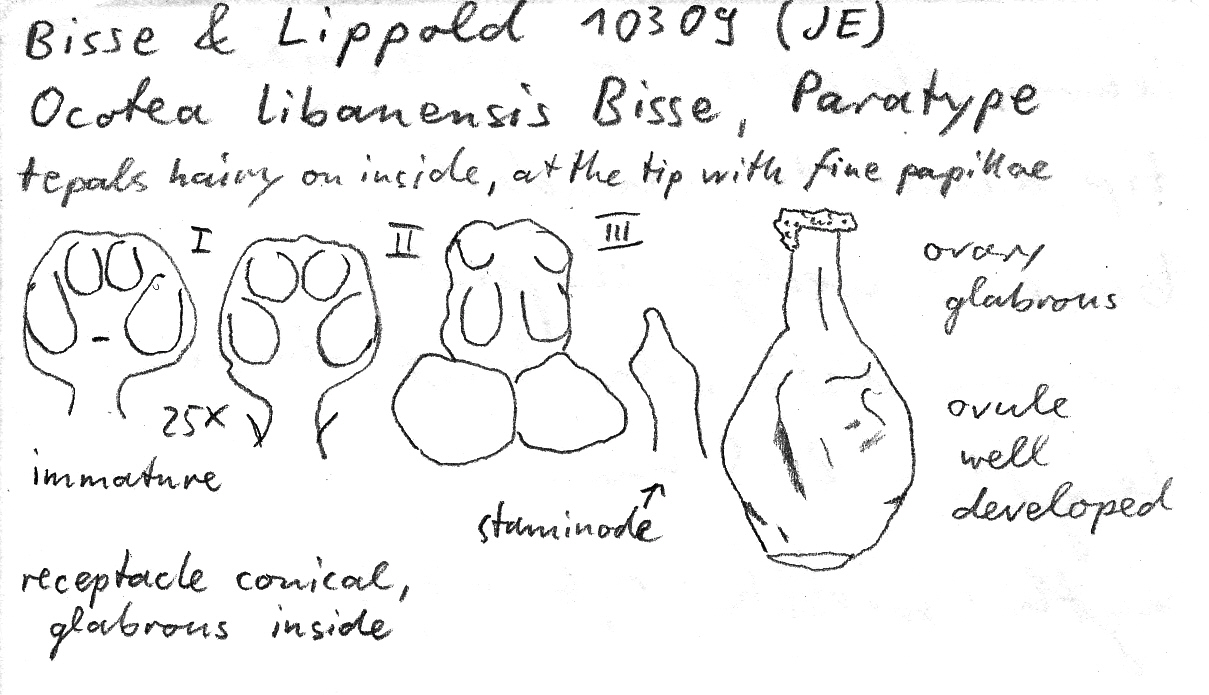 Bisse & Lippold 10309 (JE)
Ocotea libanensis Bisse, Paratype
tepals hairy on inside, at the tip with fine papillae
I II III
ovary
glabrous
25x
immature
ovule
well
developed
staminode ↑
receptacle conical,
glabrous inside